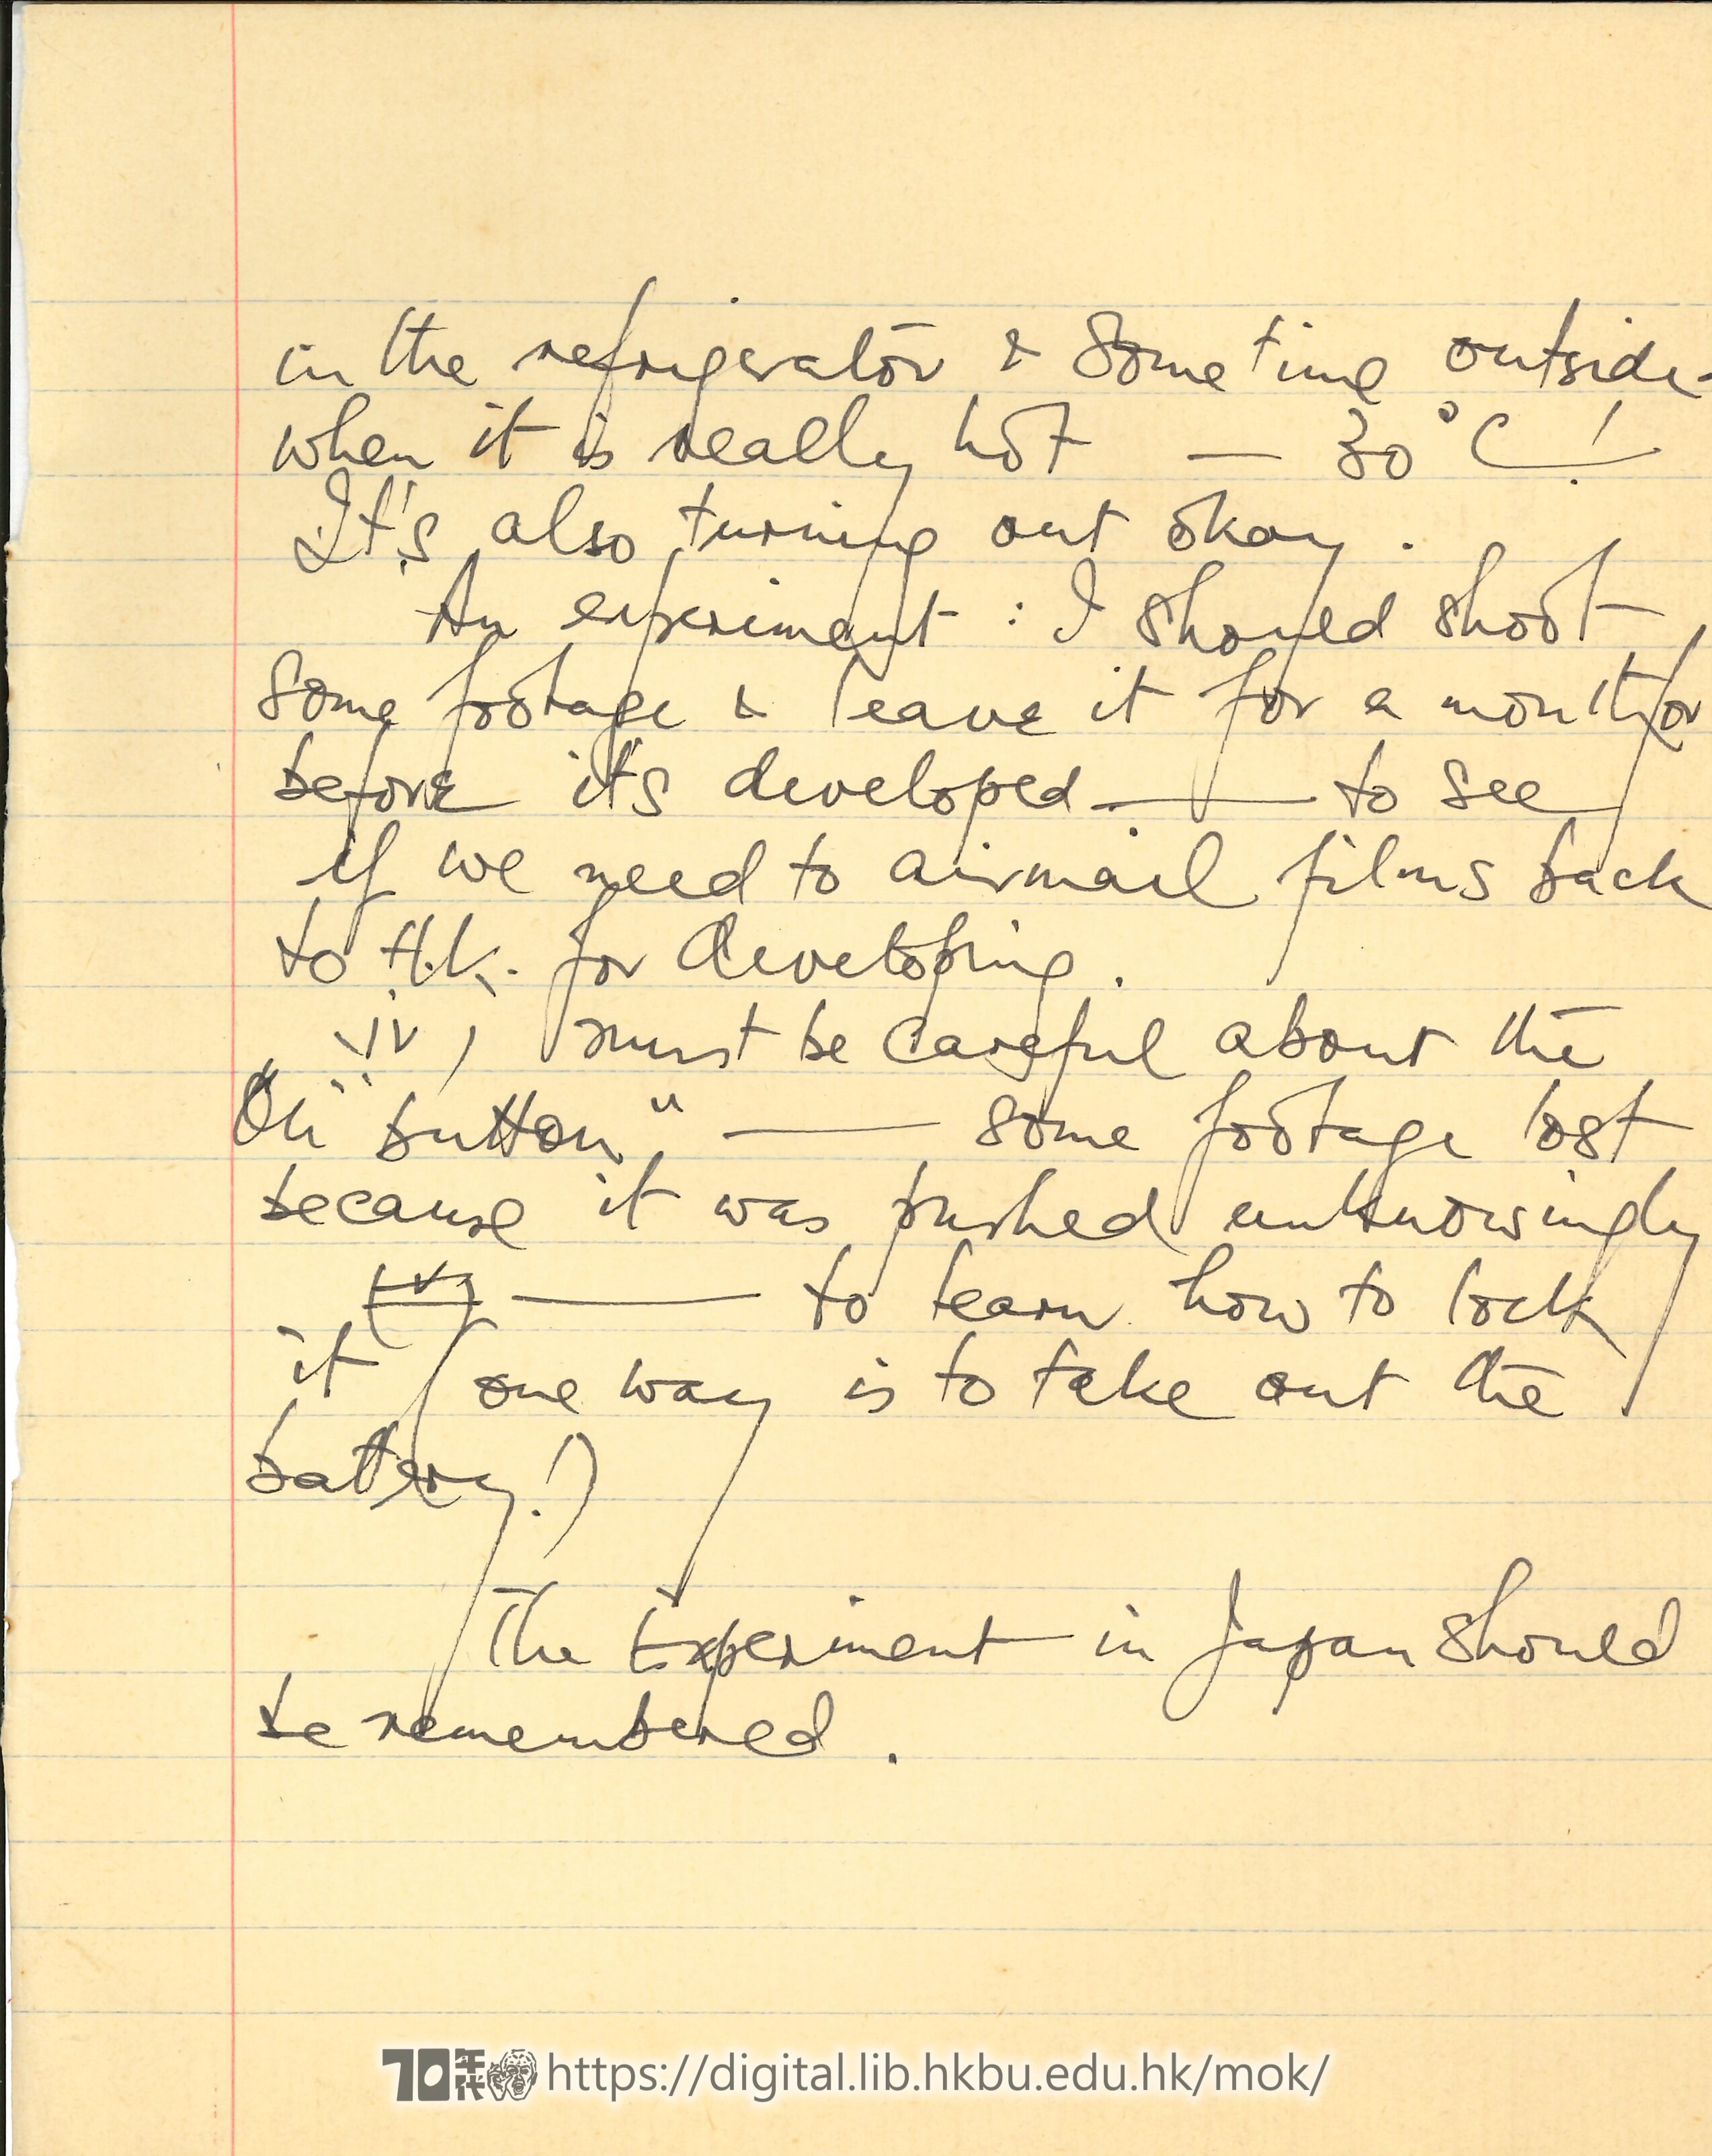 in the refrigerator & Some time outside
when it is really hot — 30°C!
It's also turning out okay.
An experiment : I should shoot
some footage & leave it for a month or
before it's developed — to see
if we need to airmail films back
to H.K. for developing.
iv) must be careful about the
"On" button" — some footage lost
because it was pushed unknowingly
— to learn how to lock
it (one way is to take out the
battery!)
The Experiment in Japan should
be remembered.
70年代 https://digital.lib.hkbu.edu.hk/mok/